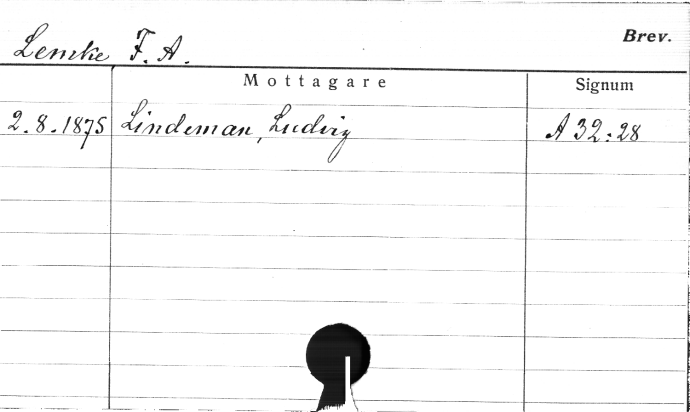 Brev.
Lemke F. A.
Mottagare Signum
2.8.1875 Lindeman, Ludvig A 32:28